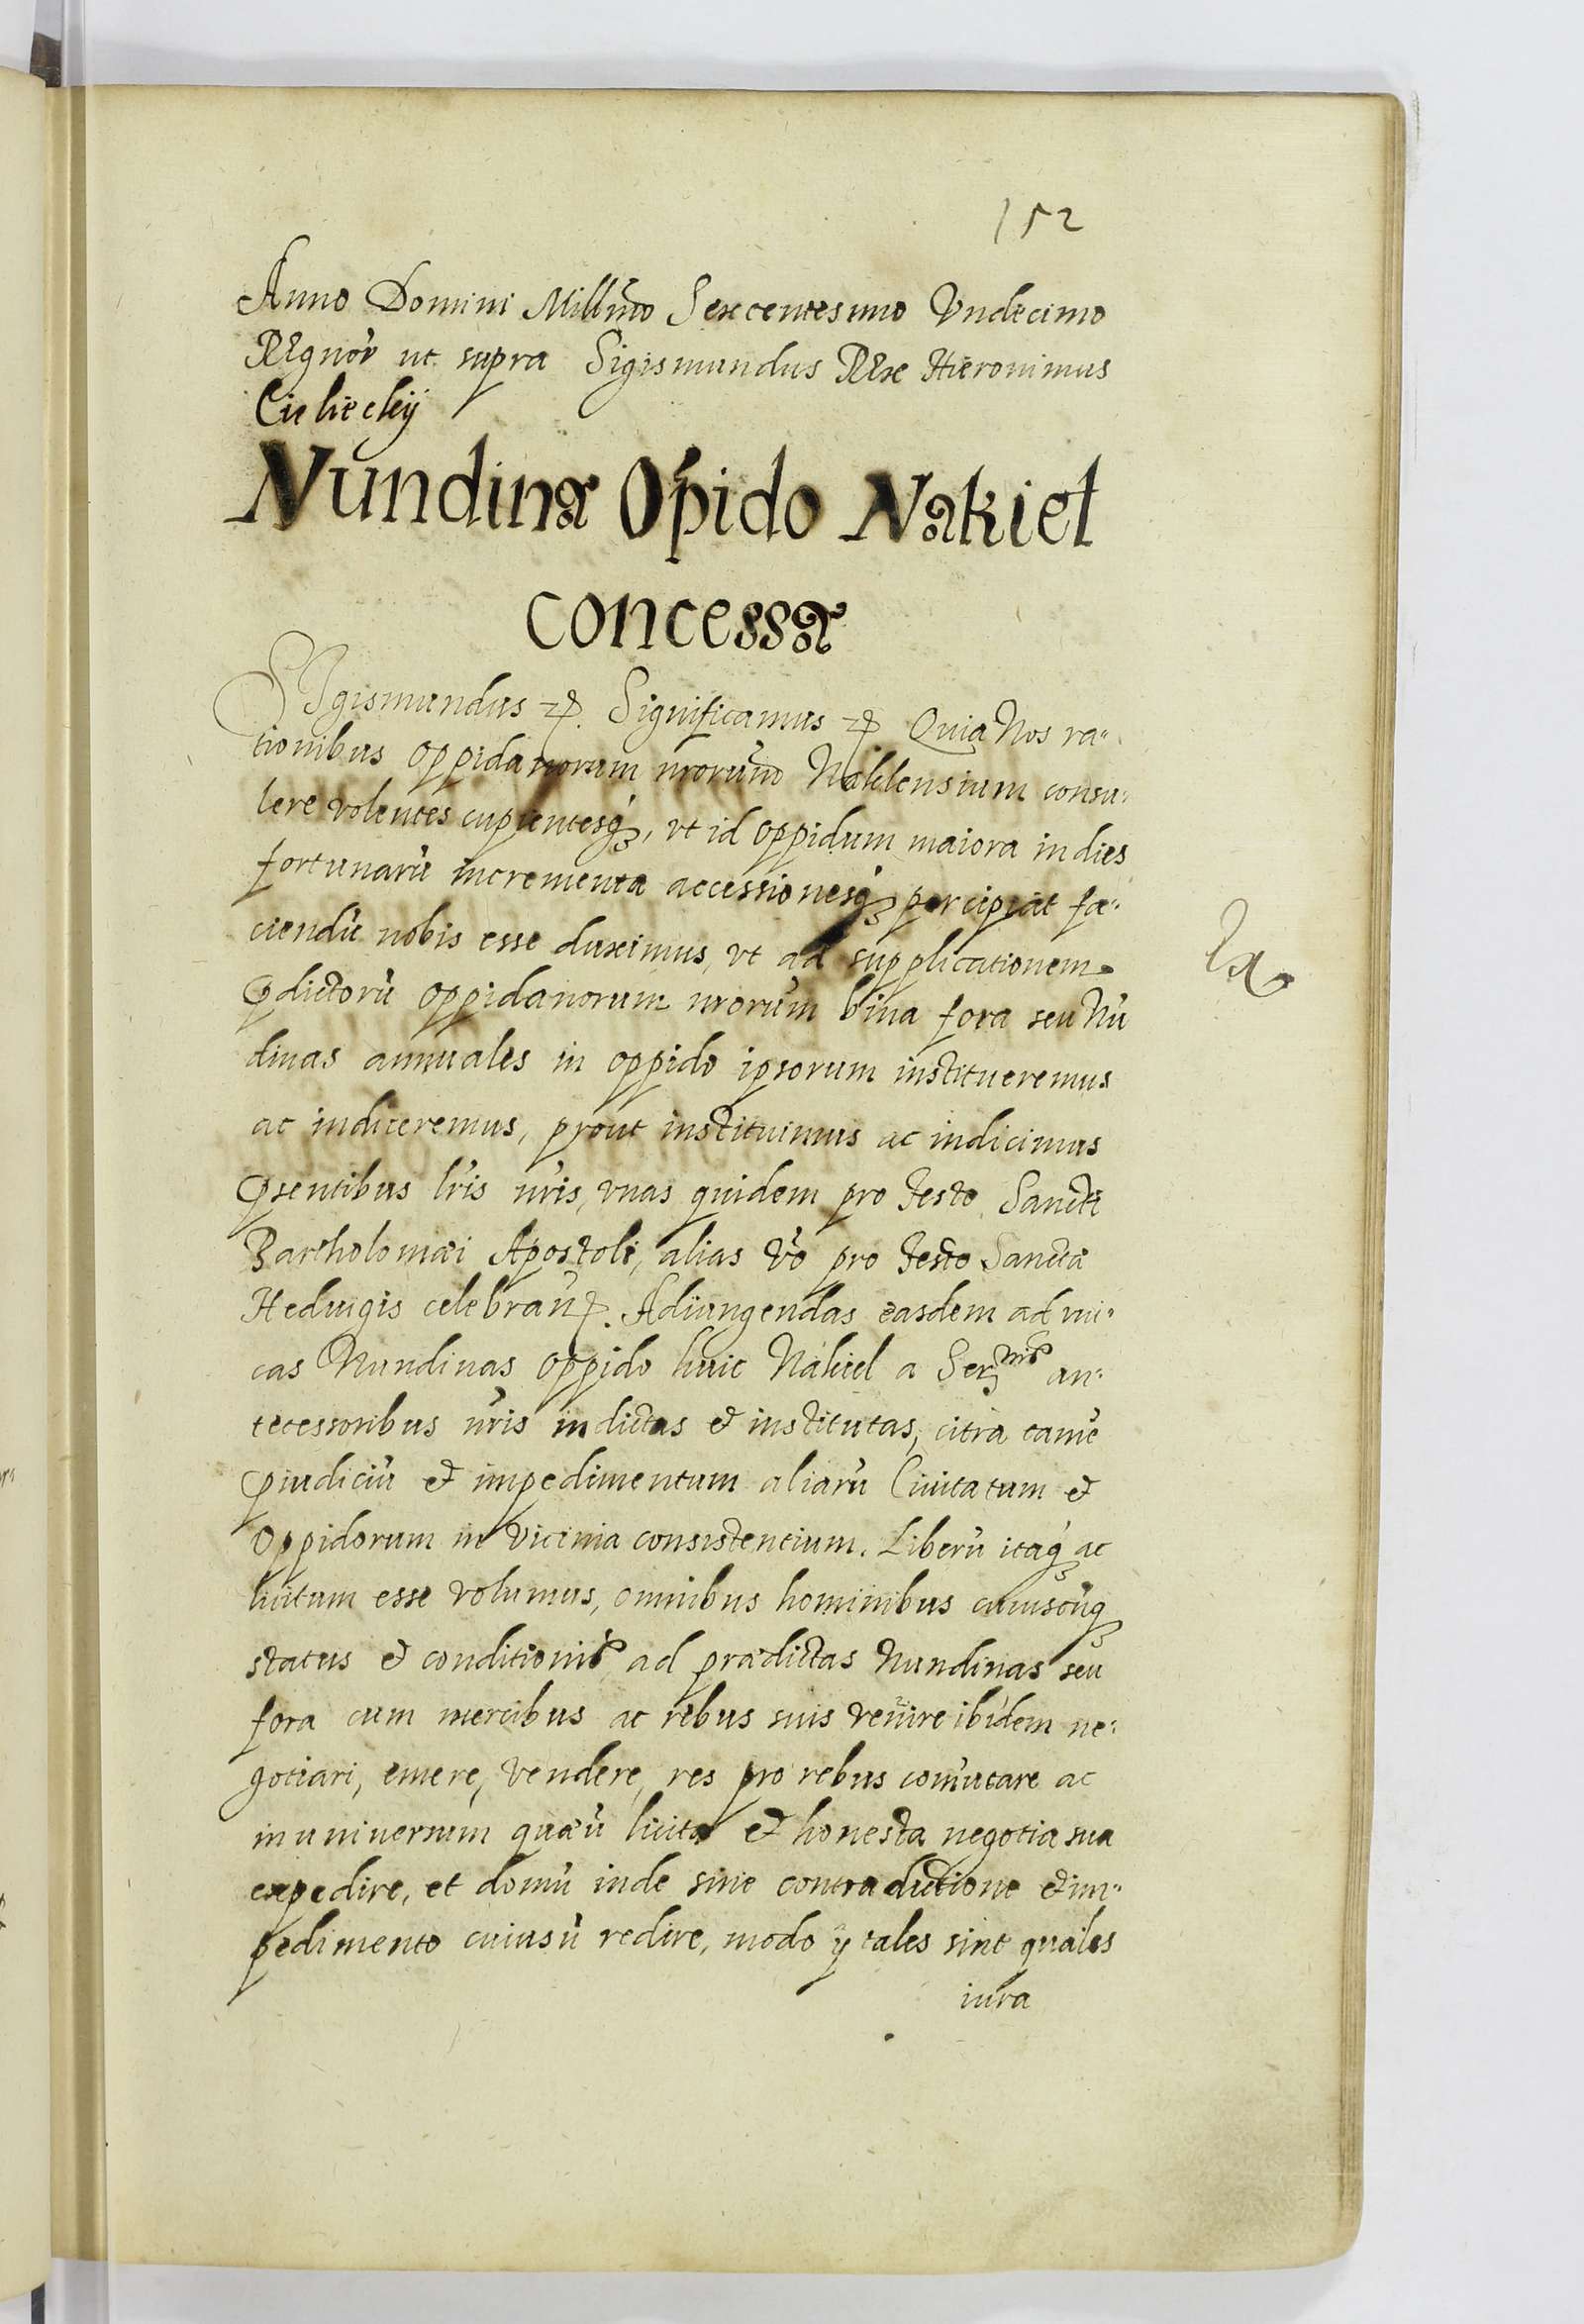 152
Anno Domini Millmo Sexcentesimo Vndecimo
REgnor̃ ut supra Sigismundus REx Hieronimus
Cieliecky
Nundinæ Opido Nakiel
concessæ
SIgismundus etc. Significamus etc. Quia Nos ra-
tionibus oppidanorum nr̃orum Naklensium consu-
lere volentes cupientesq́ꝫ, vt id oppidum maiora in dies
fortunarũ incrementa accessionesq́ꝫ percipiat fa-
ciendũ nobis esse duximus, vt ad supplicationem
p̃dictorũ oppidanorum nr̃orum bina fora seu Nũ
dinas annuales in oppido ipsorum institueremus
ac indiceremus, prout instituimus ac indicimus
p̃sentibus lr̃is nr̃is, vnas quidem pro festo Sancti
Bartholomæi Apostoli, alias ṽo pro festo Sanctæ
Heduigis celebrañ. Adiungendas easdem ad uni-
cas Nundinas oppido huic Nakiel a Serᵐⁱˢ an-
tecessoribus nr̃is indictas et institutas, citra tamẽ
p̃iudiciũ et impedimentum aliarũ Ciuitatum et
Oppidorum in vicinia consistentium. Liberũ itaq́ꝫ ac
licitum esse volumus, omnibus hominibus cuiuscũqꝫ
status et conditionis ad prædictas Nundinas seu
fora cum mercibus ac rebus suis venire ibidem ne-
gotiari, emere, vendere, res pro rebus com̃utare ac
in uniuersum quæũ licita et honesta negotia sua
expedire, et domũ inde sine contradictione et im-
pedimento cuiusũ redire, modo ÿ tales sint quales
iura